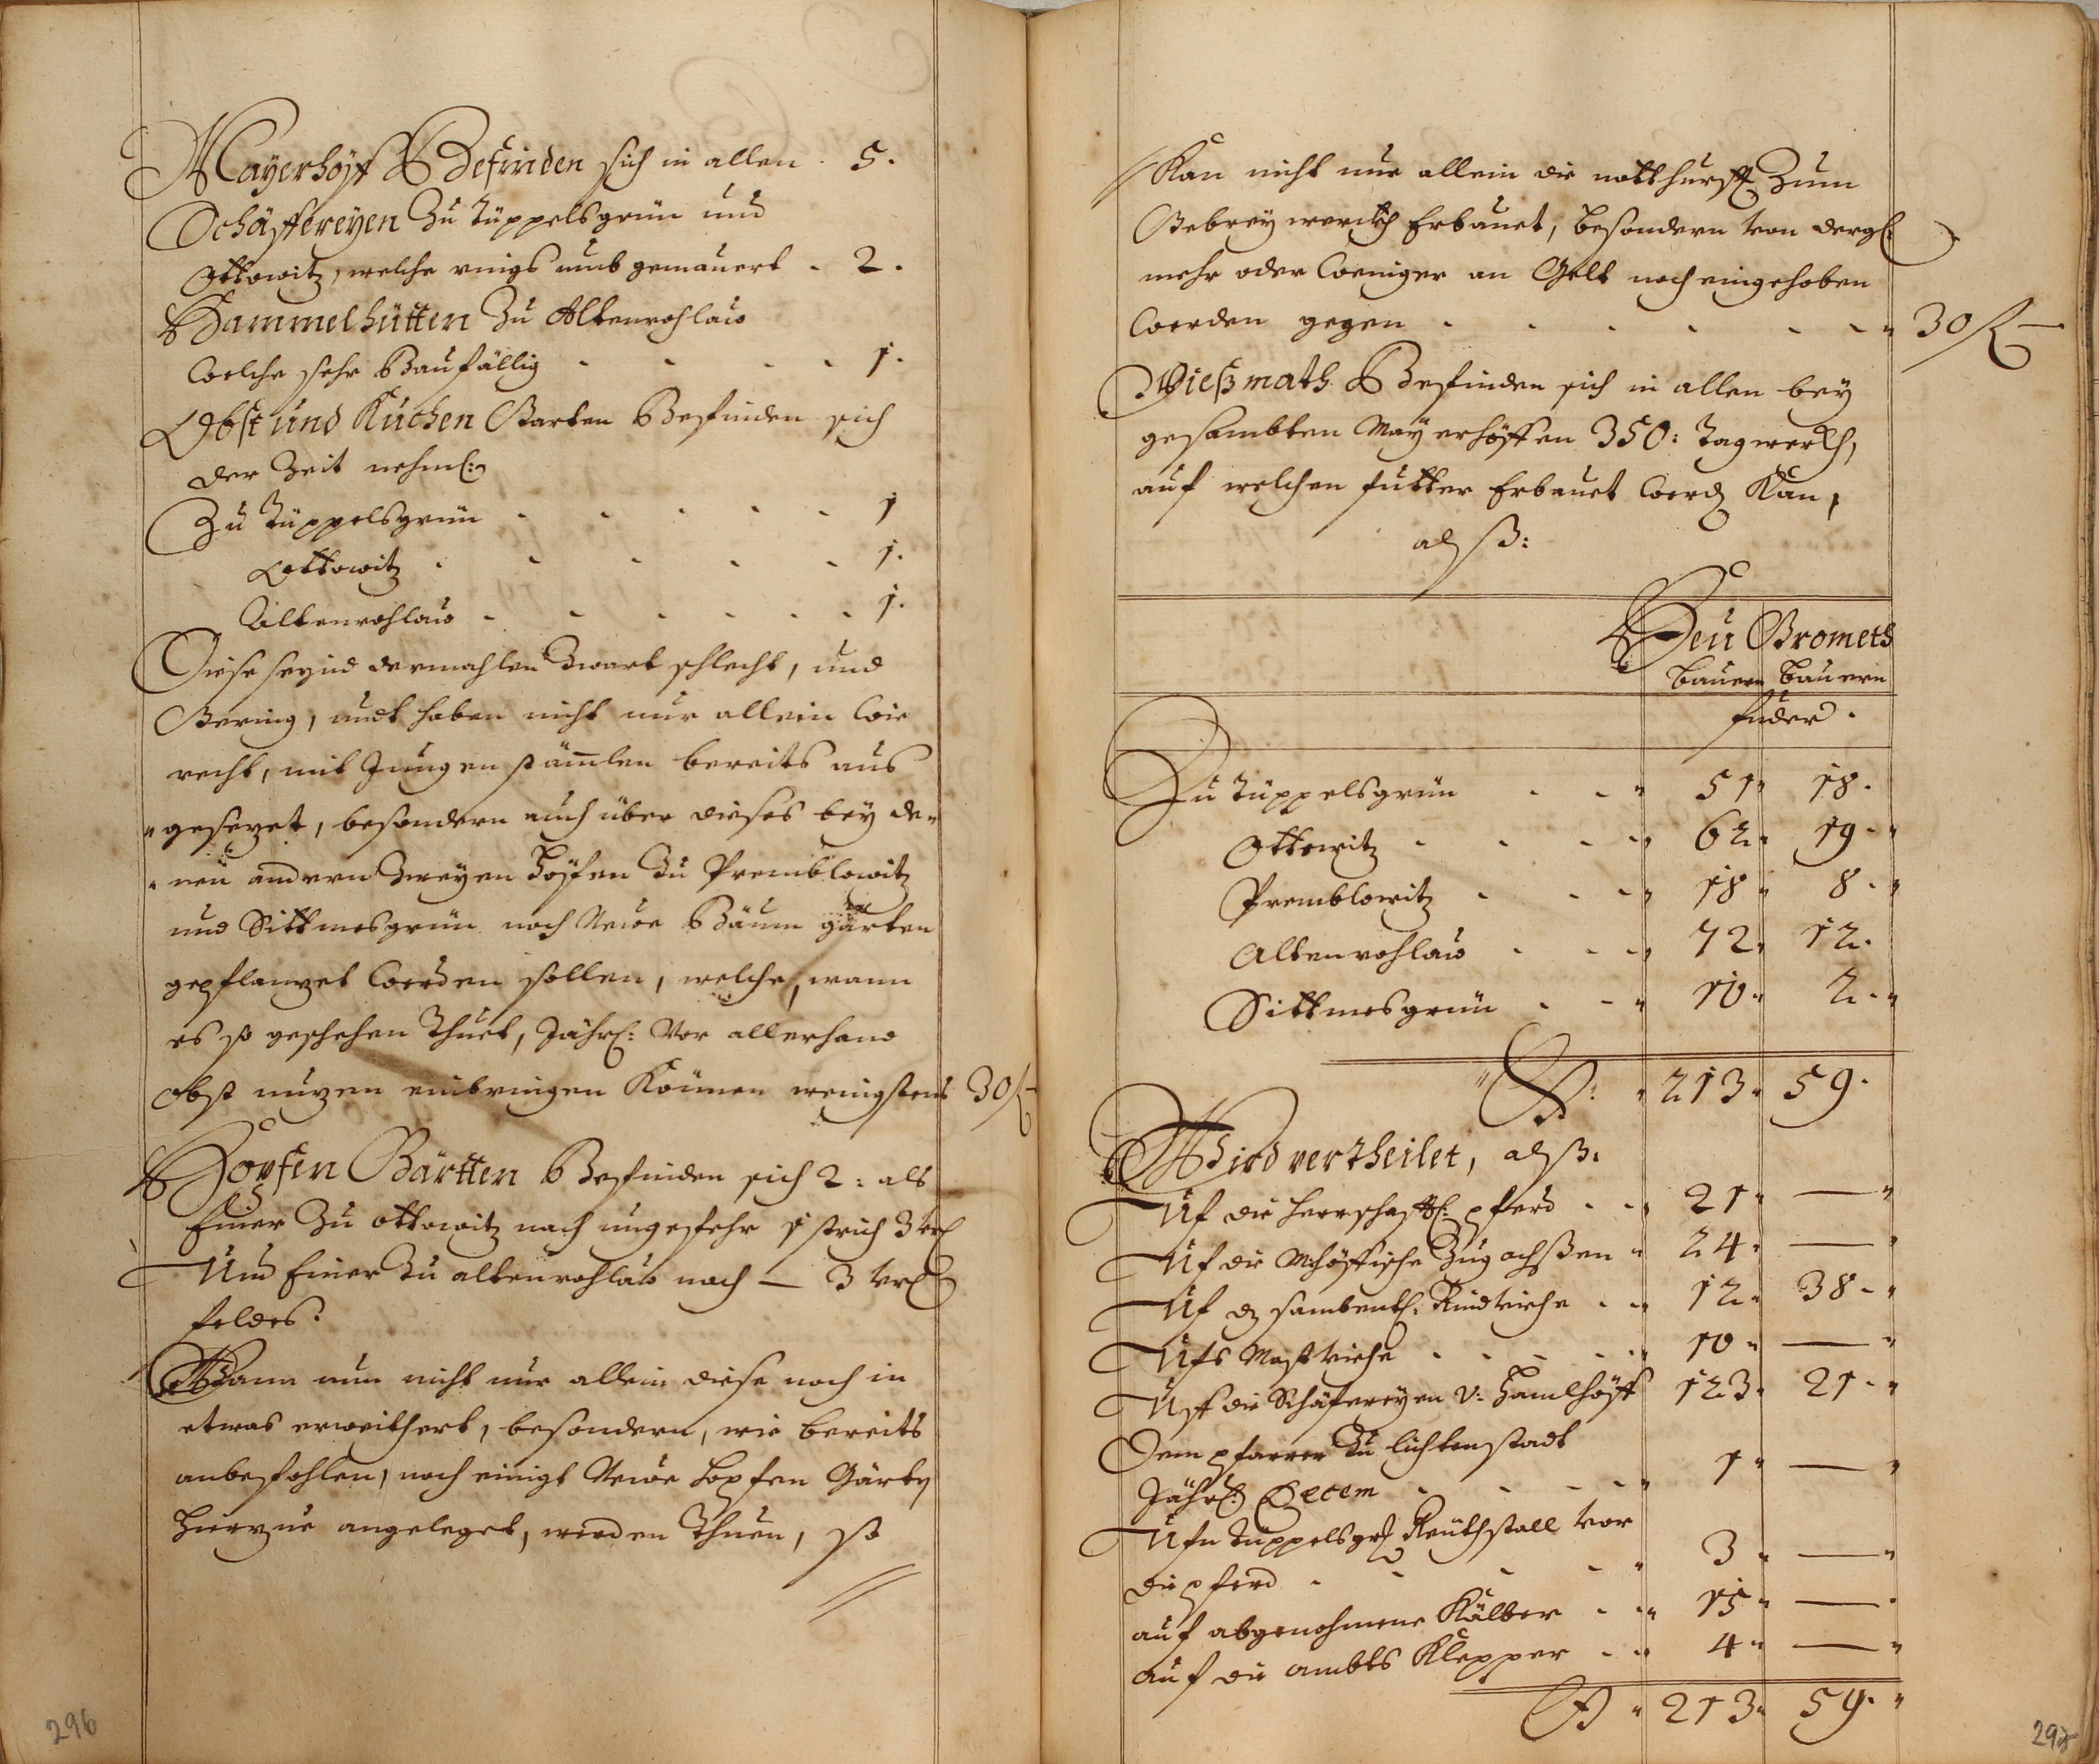 Mayerhöff Befinden sich in allen . 5.
Schäffereyen Zu Tüppelsgrün und
Ottowitz, welche rings umb gemauert . 2.
Hammelhütten Zu Altenrohlau
Welche sehr Baufällig . . . . 1.
Obst und Kuchen Garten Befinden sich
der Zeit nehml:
Zu Tüppelsgrün . . . . . 1
Ottowitz . . . . . 1.
Altenrohlau . . . . . . 1.
Diese seynd dermahlen Zwart schlecht, und
Gering, undt haben nicht nur allein Wie
recht, mit Jungen stämlen bereits aus
"gesezet, besondern auch über dieses bey de"
"nen andern Zweyen Höffen Zu Premblowitz
und Sittmesgrün noch Neue Bäum gärten
gepflanzet Werden sollen, welche, wann
es so geschehen Thuet, Jährl: Vor allerhand
obst nuzen einbringen Können wenigstens 30 f
Hopfen Gärtten Befinden sich 2: als
Einer Zu ottowitz nach ungefehr 1 strich 3 vrl
Und Einer Zu altenrohlau nach — 3 vrl
feldes.
Wann nun nicht nur allein diese noch in
etwas erweithert, besondern, wie bereits
anbefohlen, noch einige Neue Hopfen Gärten
Hierzue angeleget, werden Thuen, so
296
Kan nicht nur allein die notthurfft Zum
Gebrey Erbauet, besondern von dergl:
mehr oder Weniger an Gelt noch eingehoben
Werden gegen . . . . . . 30 f —
Wießmath Befinden sich in allen bey
gesambten Mayerhöffen 350: Tagwerkh,
auf welchen futter Erbauet Werd Kan,
alß:
Heu Grometh
bauern bauern
fuder.
Zu Tüppelsgrün . . " 51 " 18.
Ottowitz . . . . " 62 " 19. "
Premblowitz . . . " 18 " 8. "
Altenrohlau . . . " 72 " 12.
Sittmesgrün . . " 10 " 2. "
" 213 " 59.
Wird vertheilet, alß:
Uf die herrschafftl: pferd . . " 21 " — "
Uf die Mhöffische Zug ochßen " 24 " — "
Uf d sambentl: Rindviehe . . " 12 " 38 "
Ufs Mastviehe . . . . " 10 " — "
Uff die Schäfereyen v: Hamlhöff 123 " 21 "
Dem pfarrer Zu lichtenstadt
Jährl: Decem . . . . " 1 " — "
Ufn Tuppelsgr: Reuthstall vor
die pferd . . . . " 3 " — "
auf abgenohmene Kälber . . " 15 " — "
auf die ambts Klepper . . " 4 " — "
" 213 " 59. "